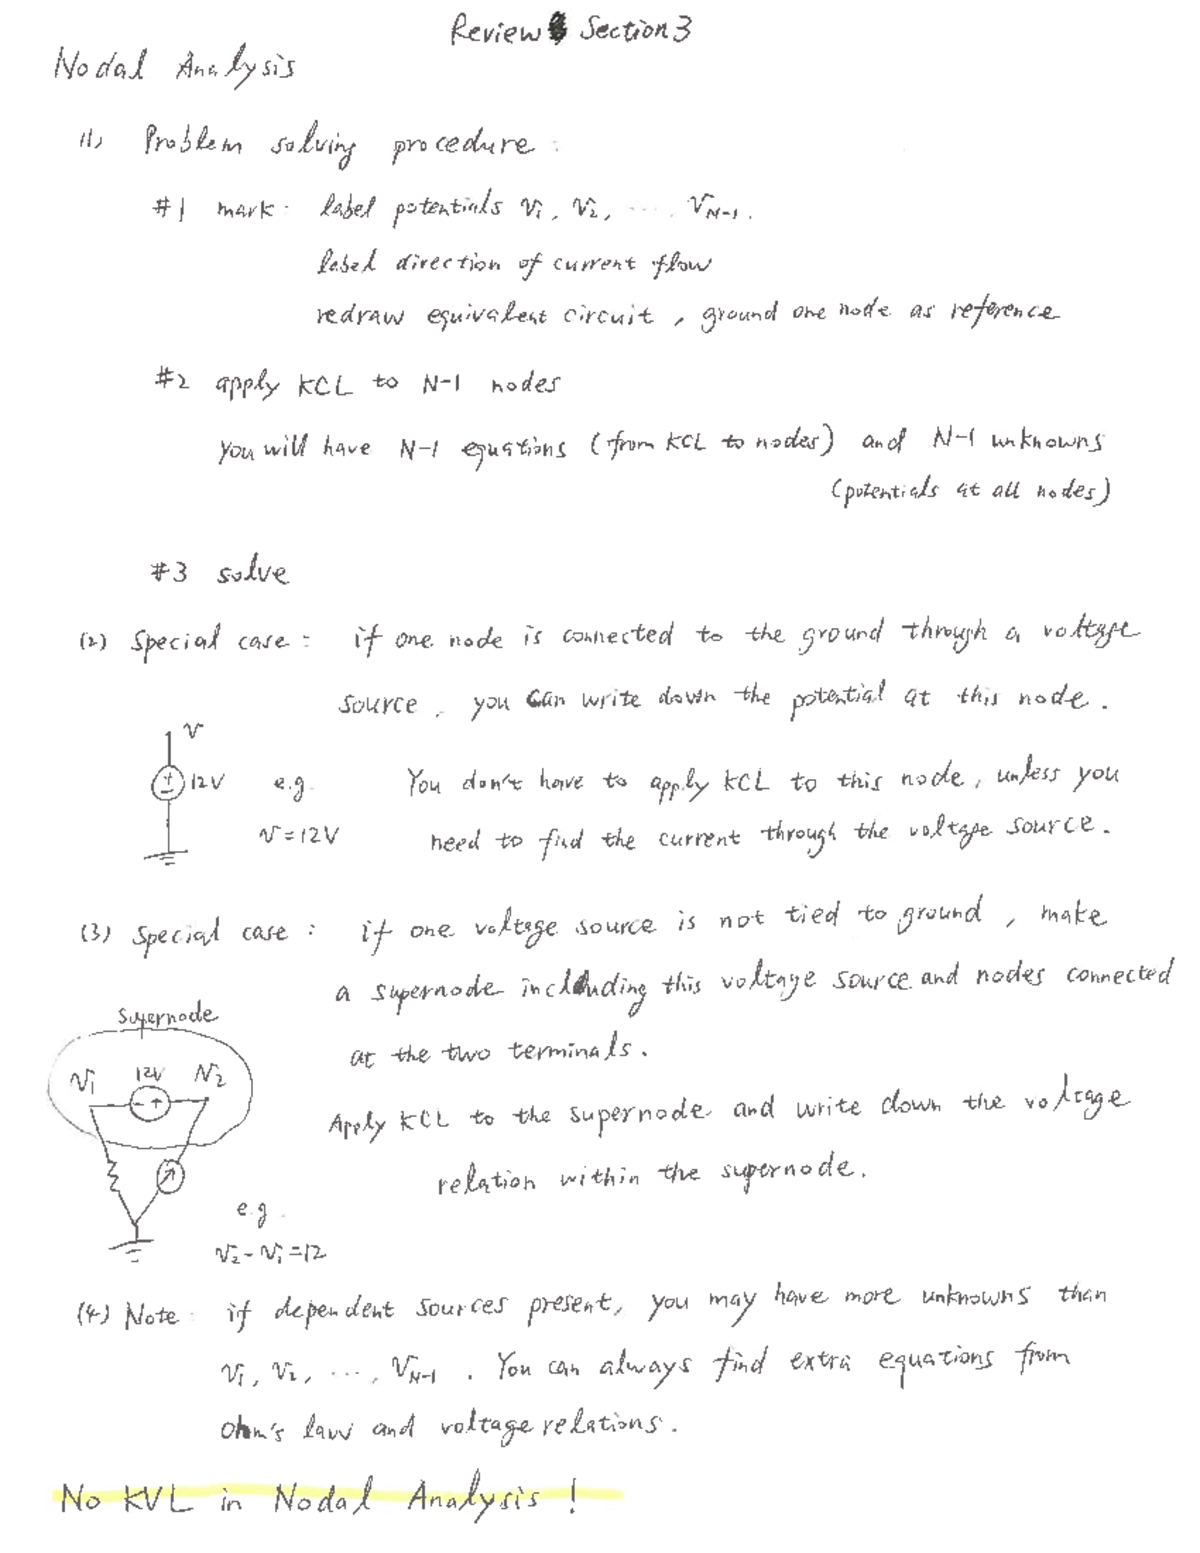 Review Section 3
Nodal Analysis
(1) Problem solving procedure :
#1 mark : label potentials V1, V2, ···· VN-1.
label direction of current flow
redraw equivalent circuit , ground one node as reference
#2 apply KCL to N-1 nodes
you will have N-1 equations (from KCL to nodes) and N-1 unknowns
(potentials at all nodes)
#3 solve
(2) Special case : if one node is connected to the ground through a voltage
source , you can write down the potential at this node .
V
+
−
12V
e.g.
V = 12V
You don't have to apply KCL to this node , unless you
need to find the current through the voltage source .
(3) Special case : if one voltage source is not tied to ground , make
a supernode including this voltage source and nodes connected
at the two terminals .
Supernode
V1 12V V2
- +
Apply KCL to the supernode and write down the voltage
relation within the supernode .
e.g.
V2 - V1 = 12
(4) Note : if dependent sources present, you may have more unknowns than
V1, V2, ···, VN-1 . You can always find extra equations from
ohm's law and voltage relations .
No KVL in Nodal Analysis !